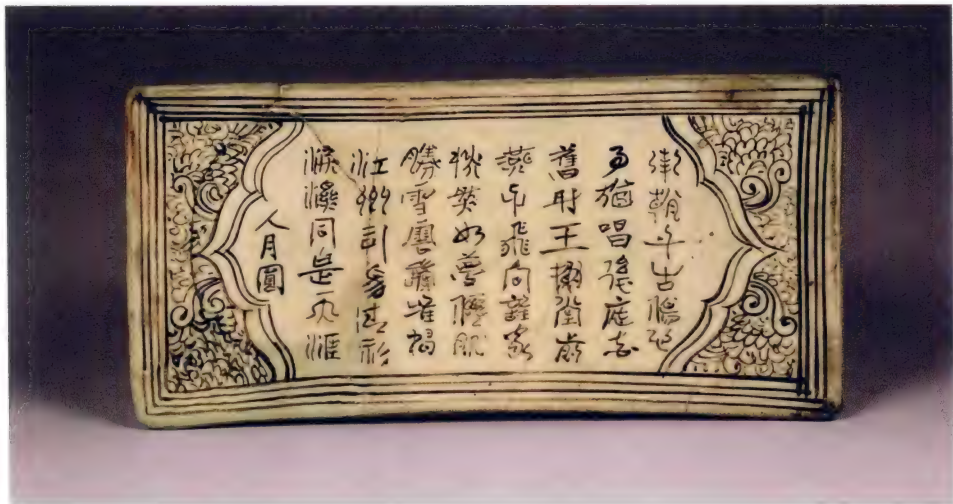 南朝千古傷心
事猶唱後庭花
舊时王榭堂前
燕子飛向誰家
恍然如夢僊肌
勝雪雲鬢堆鴉
江州司馬青衫
淚濕同是天涯
人月圓